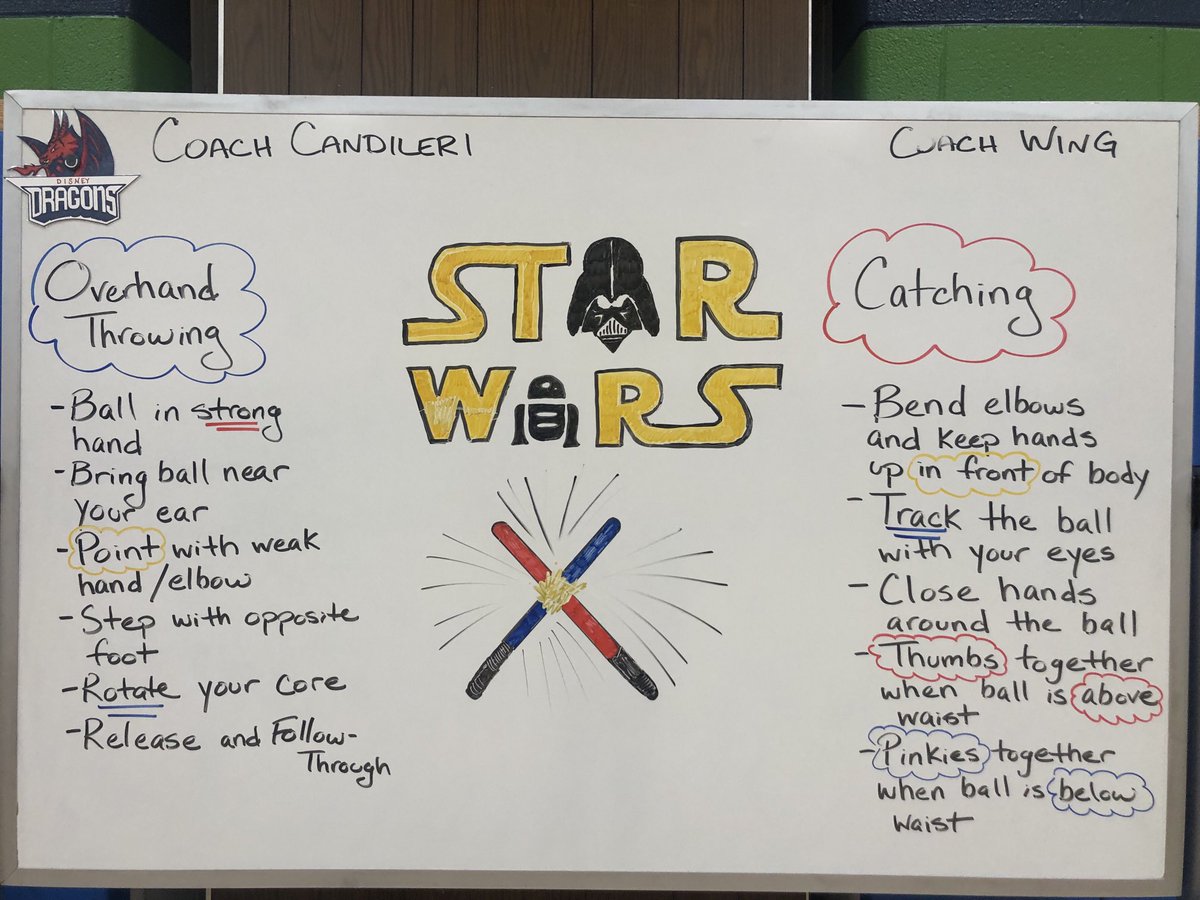 COACH CANDILERI
COACH WING
DISNEY
DRAGONS
Overhand
Throwing
- Ball in strong
hand
- Bring ball near
your ear
- Point with weak
hand/elbow
- Step with opposite
foot
- Rotate your core
- Release and Follow-
Through
STAR
WARS
Catching
- Bend elbows
and keep hands
up in front of body
- Track the ball
with your eyes
- Close hands
around the ball
- Thumbs together
when ball is above
waist
- Pinkies together
when ball is below
waist